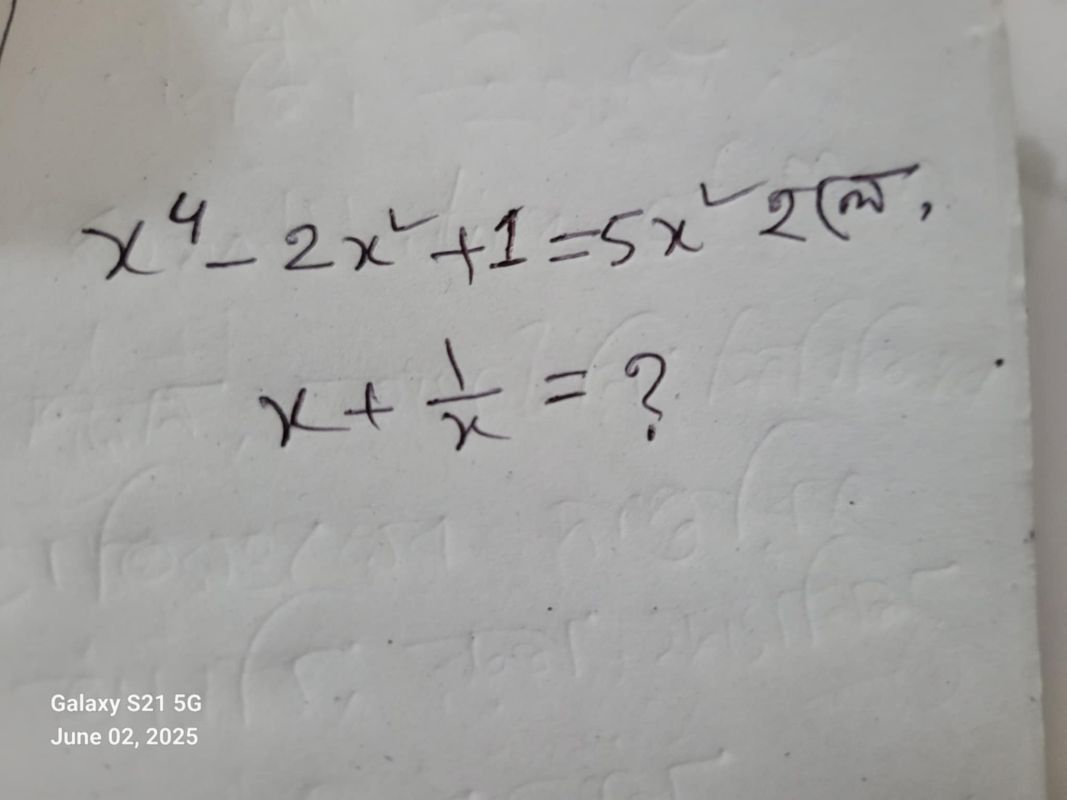 x⁴ - 2x² + 1 = 5x² হলে,
x + 1/x = ?
Galaxy S21 5G
June 02, 2025